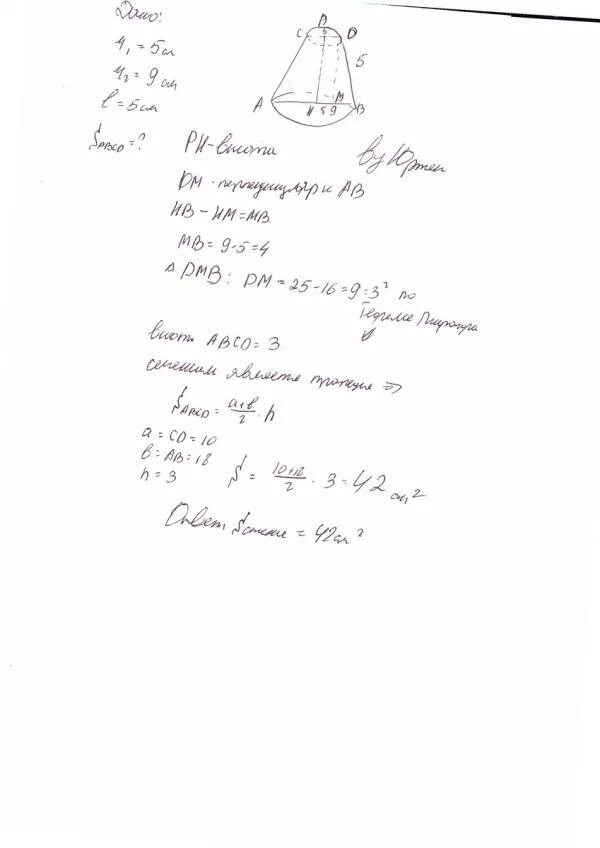 Дано:
r₁ = 5см
r₂ = 9см
l = 5см
S ABCD = ?
B
C D
5
A M B
H 5 9
PH - высота
by Юрген
DM - перпендикуляр к AB
HB - HM = MB
MB = 9-5=4
△ DMB: DM = 25-16=9=3² по
Теореме Пифагора
высота ABCD = 3
сечением является трапеция ⇒
S ABCD = a+b/2 · h
a = CD = 10
b = AB = 18
h = 3
S = 10+18/2 · 3 = 42 см²
Ответ: S сечение = 42см²